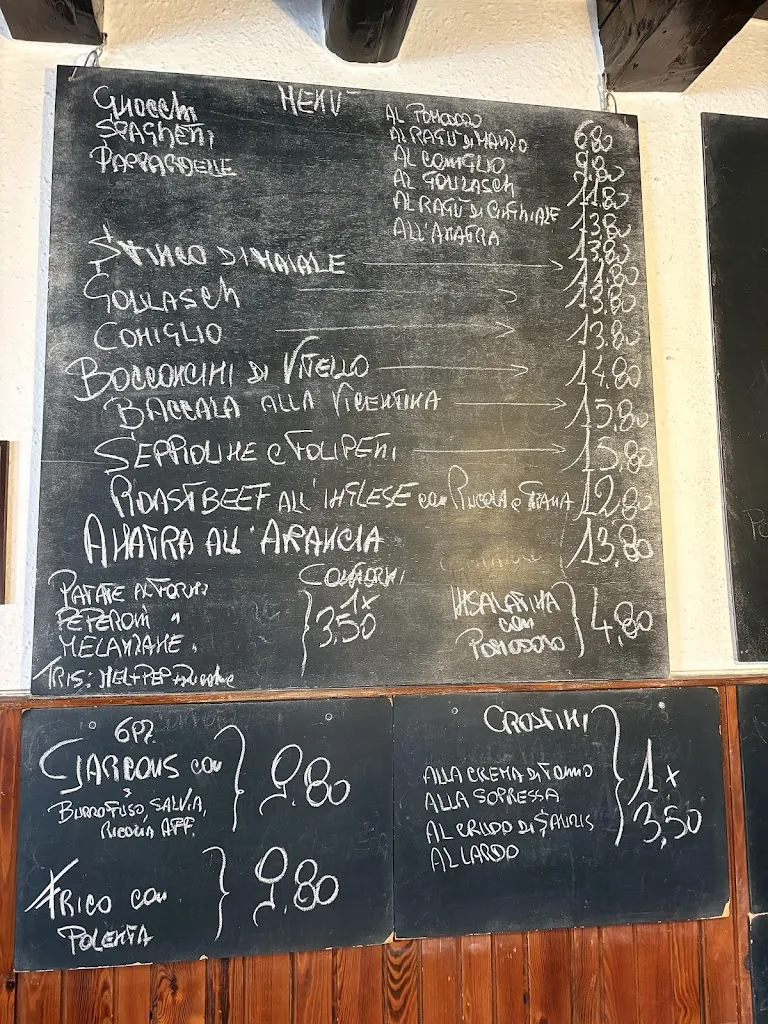 MENU'
GNOCCHI
SPAGHETTI
PAPPARDELLE
AL POMODORO 6.80
AL RAGÙ DI MANZO 9.80
AL CONIGLIO 11.80
AL GOULASCH 13.80
AL RAGÙ DI CINGHIALE 13.80
ALL'ANATRA
STINCO DI MAIALE
GOULASCH 13.80
CONIGLIO 13.80
BOCCONCINI DI VITELLO 14.80
BACCALA ALLA VICENTINA 15.80
SEPPIOLINE e FOLIPETTI 15.80
ROASTBEEF ALL'INGLESE con RUCOLA e GRANA 12.80
ANATRA ALL'ARANCIA 13.80
CONTORNI
PATATE AL FORNO
PEPERONI "
MELANZANE "
TRIS: MEL+PEP+
1x
3.50
INSALATINA
con
POMODORO
4.80
6PZ
CJARSONS con
BURRO FUSO, SALVIA,
RICOTTA AFF.
9.80
FRICO con
POLENTA
9.80
CROSTINI
ALLA CREMA DI TONNO
ALLA SOPRESSA
AL CRUDO DI SAURIS
AL LARDO
1x
3,50